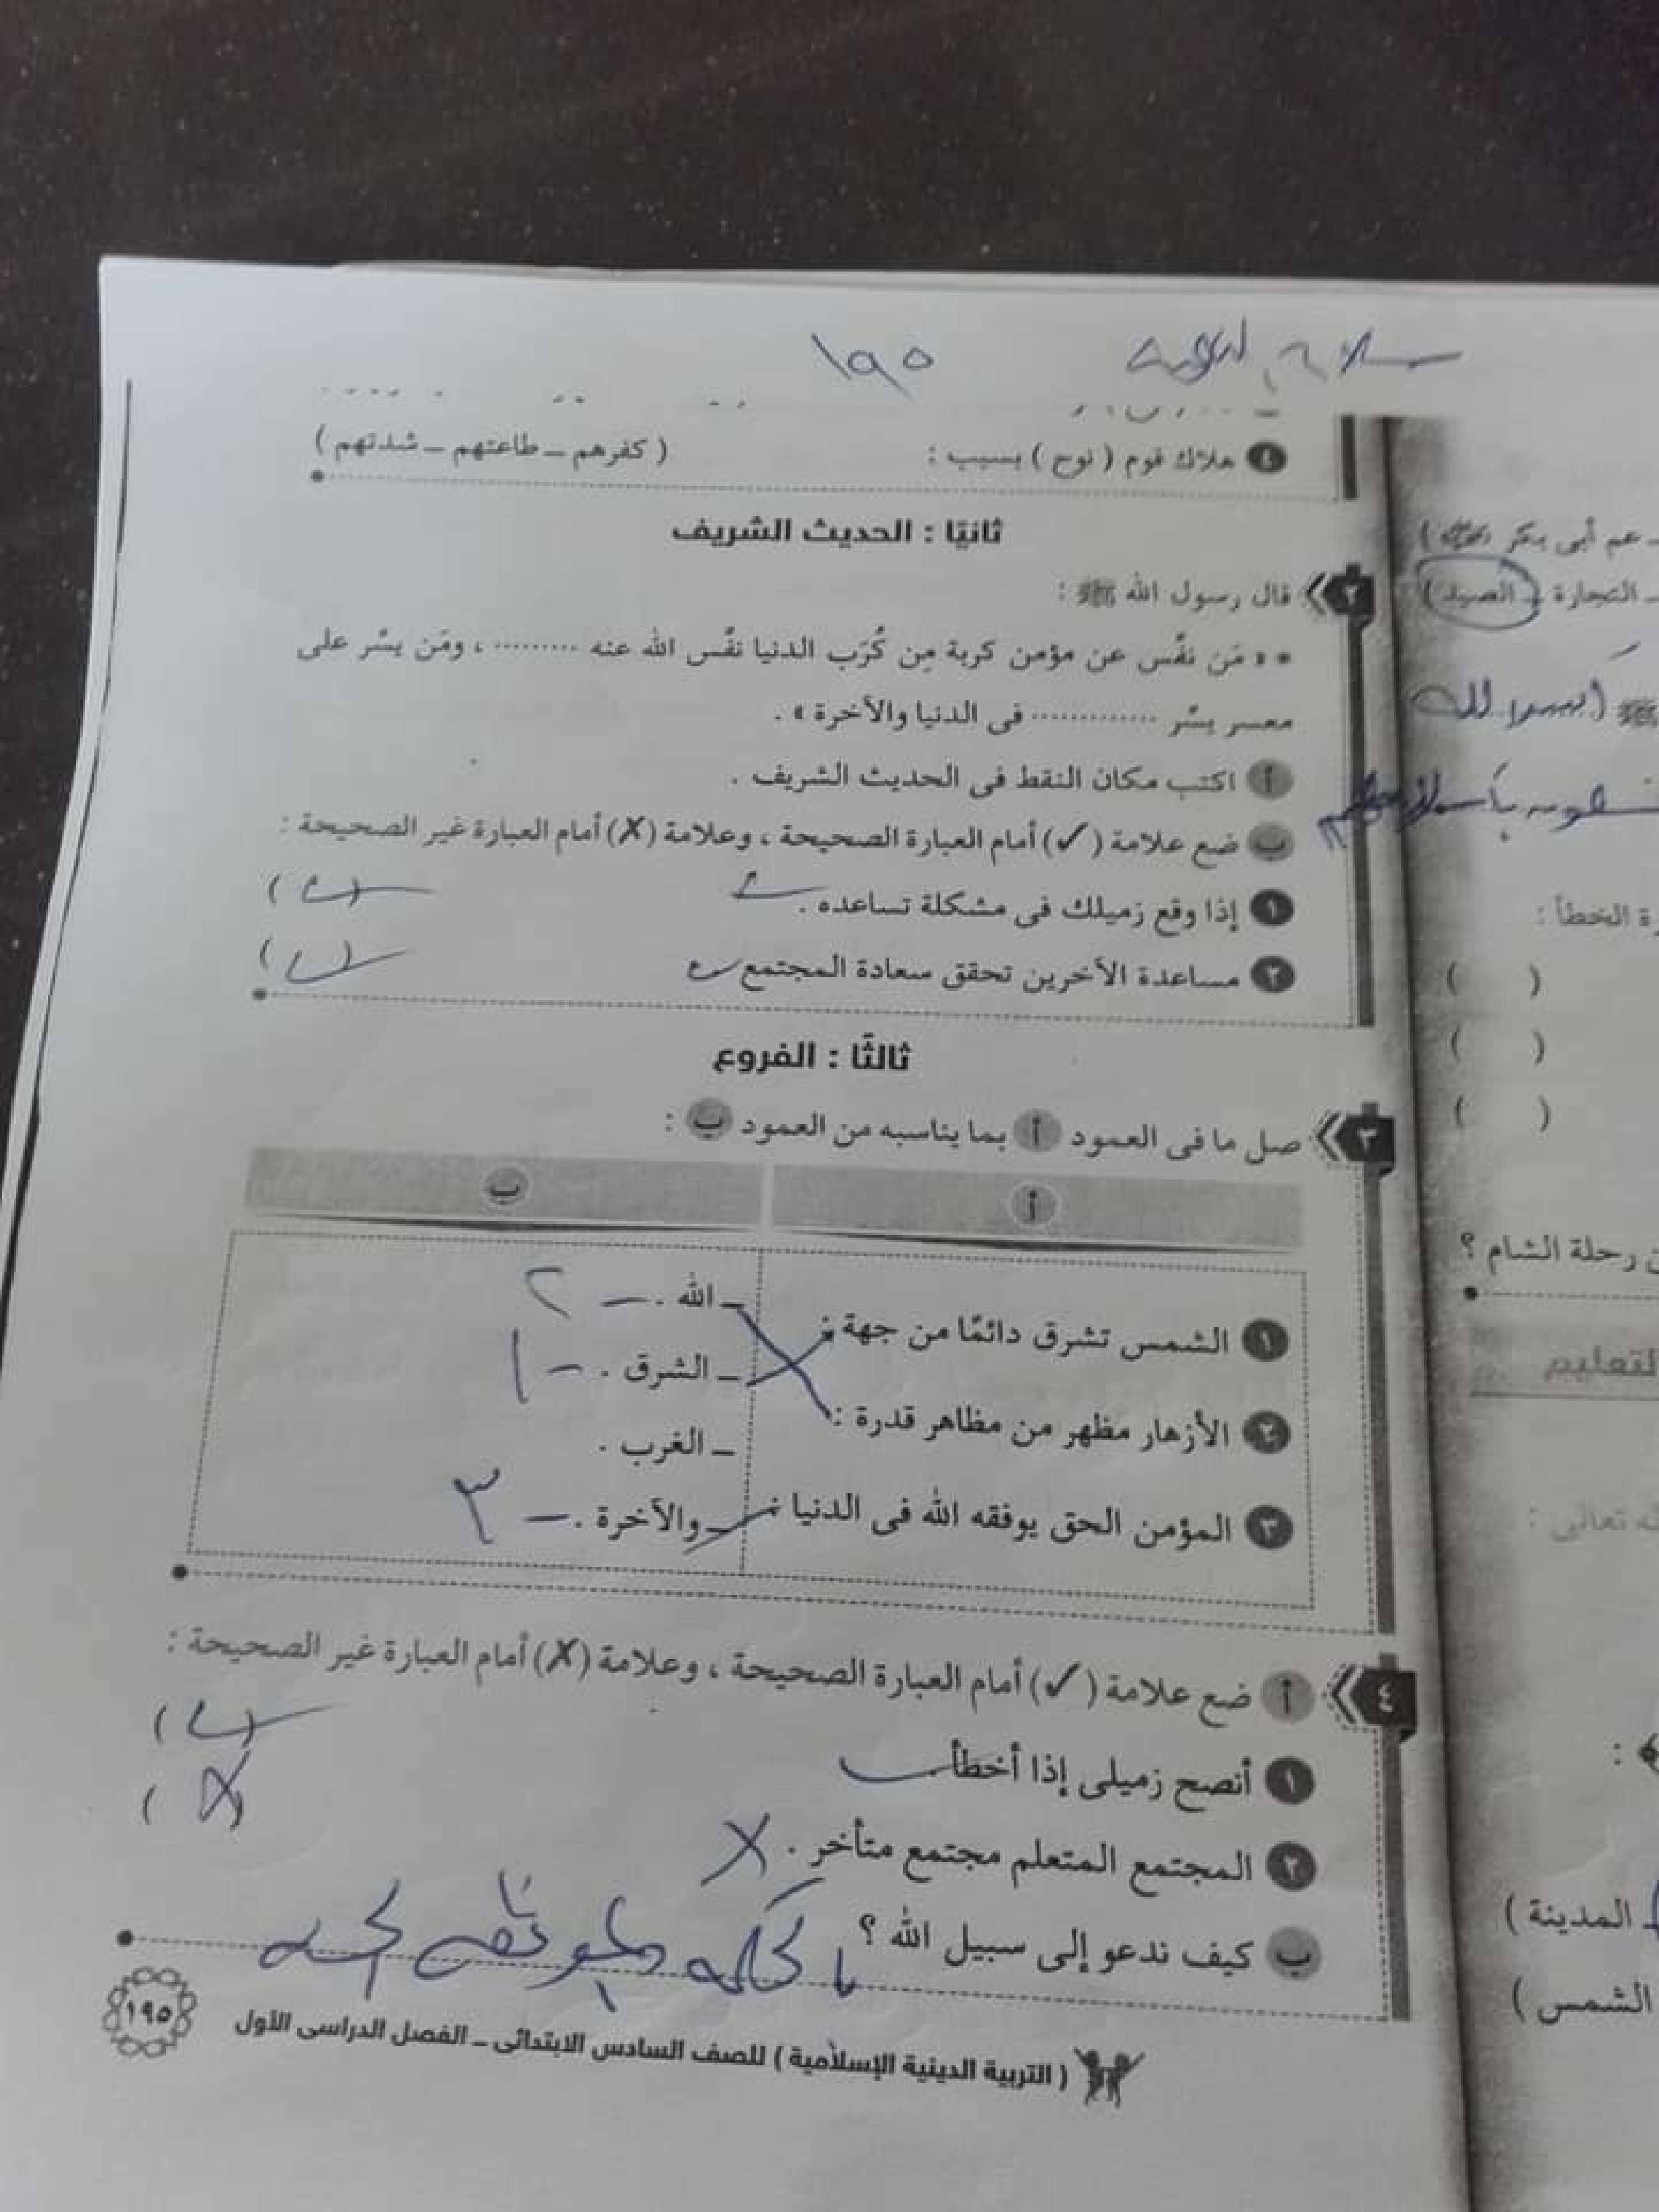 ١٩٥
٤ هلاك قوم ( نوح ) بسبب : ( كفرهم – طاعتهم – شدتهم )
ثانيًا : الحديث الشريف
٢ قال رسول الله ﷺ :
« مَن نفَّس عن مؤمن كربة مِن كُرَب الدنيا نفَّس الله عنه .......... ، ومَن يسَّر على
معسر يسَّر .............. فى الدنيا والآخرة » .
أ اكتب مكان النقط فى الحديث الشريف .
ب ضع علامة (✓) أمام العبارة الصحيحة ، وعلامة (✗) أمام العبارة غير الصحيحة :
١ إذا وقع زميلك فى مشكلة تساعده . ✓ (✓)
٢ مساعدة الآخرين تحقق سعادة المجتمع ✓ (✓)
ثالثًا : الفروع
٣ صل ما فى العمود أ بما يناسبه من العمود ب :
أ ب
١ الشمس تشرق دائمًا من جهة :
٢ الأزهار مظهر من مظاهر قدرة :
٣ المؤمن الحق يوفقه الله فى الدنيا :
– الله . – ٢
– الشرق . – ١
– الغرب .
– والآخرة . – ٣
٤ أ ضع علامة (✓) أمام العبارة الصحيحة ، وعلامة (✗) أمام العبارة غير الصحيحة :
١ أنصح زميلى إذا أخطأ . (✓)
٢ المجتمع المتعلم مجتمع متأخر . ✗ (✗)
ب كيف ندعو إلى سبيل الله ؟
( التربية الدينية الإسلامية ) للصف السادس الابتدائى – الفصل الدراسى الأول
١٩٥
– عم أبى بكر
– التجارة – الصيد )
ة الخطأ :
( )
( )
( )
ن رحلة الشام ؟
لتعليم
له تعالى :
– المدينة )
الشمس )